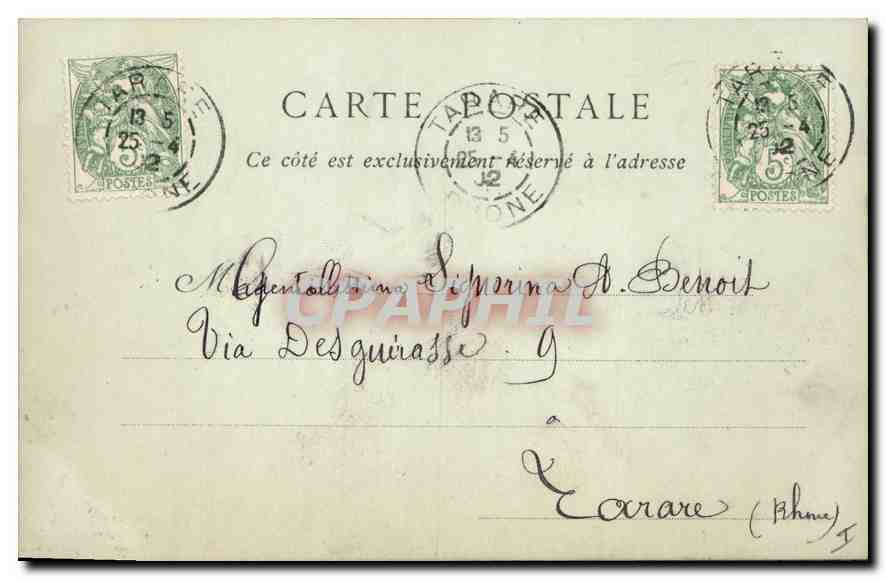 CARTE POSTALE
Ce côté est exclusivement réservé à l'adresse
TARARE
13 5
25 -4
02
RHONE
TARARE
13 5
25 -4
02
RHONE
TARARE
13 5
25 -4
02
RHONE
5c
POSTES
5c
POSTES
M Signorina A. Benoit
Via Desguirasse 9
à
Tarare (Rhone)
CPAPHIL
I